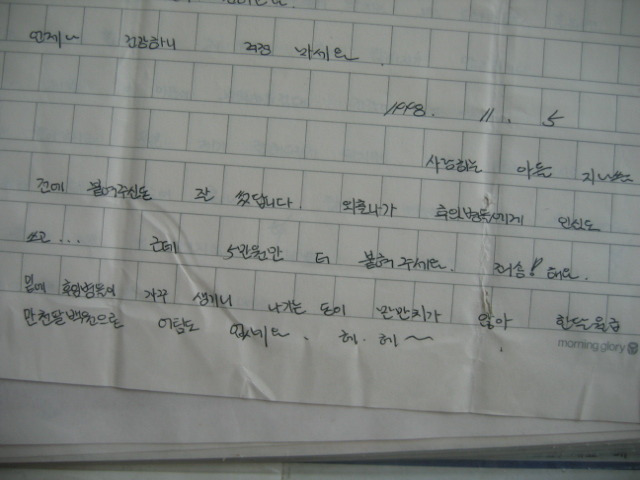 언제나 건강하니 걱정 마세요.
1998. 11. 5
사랑하는 아들
전에 붙여주신돈 잘 썼답니다. 외출나가 후임병들에게 인심도
쓰고... 근데 5만원만 더 붙혀 주세요. 죄송! 해요.
밑에 후임병들이 자꾸 생기니 나가는 돈이 만만치가 않아 한달월급
만천팔백원으로 어림도 없네요. 헤. 헤~
morning glory